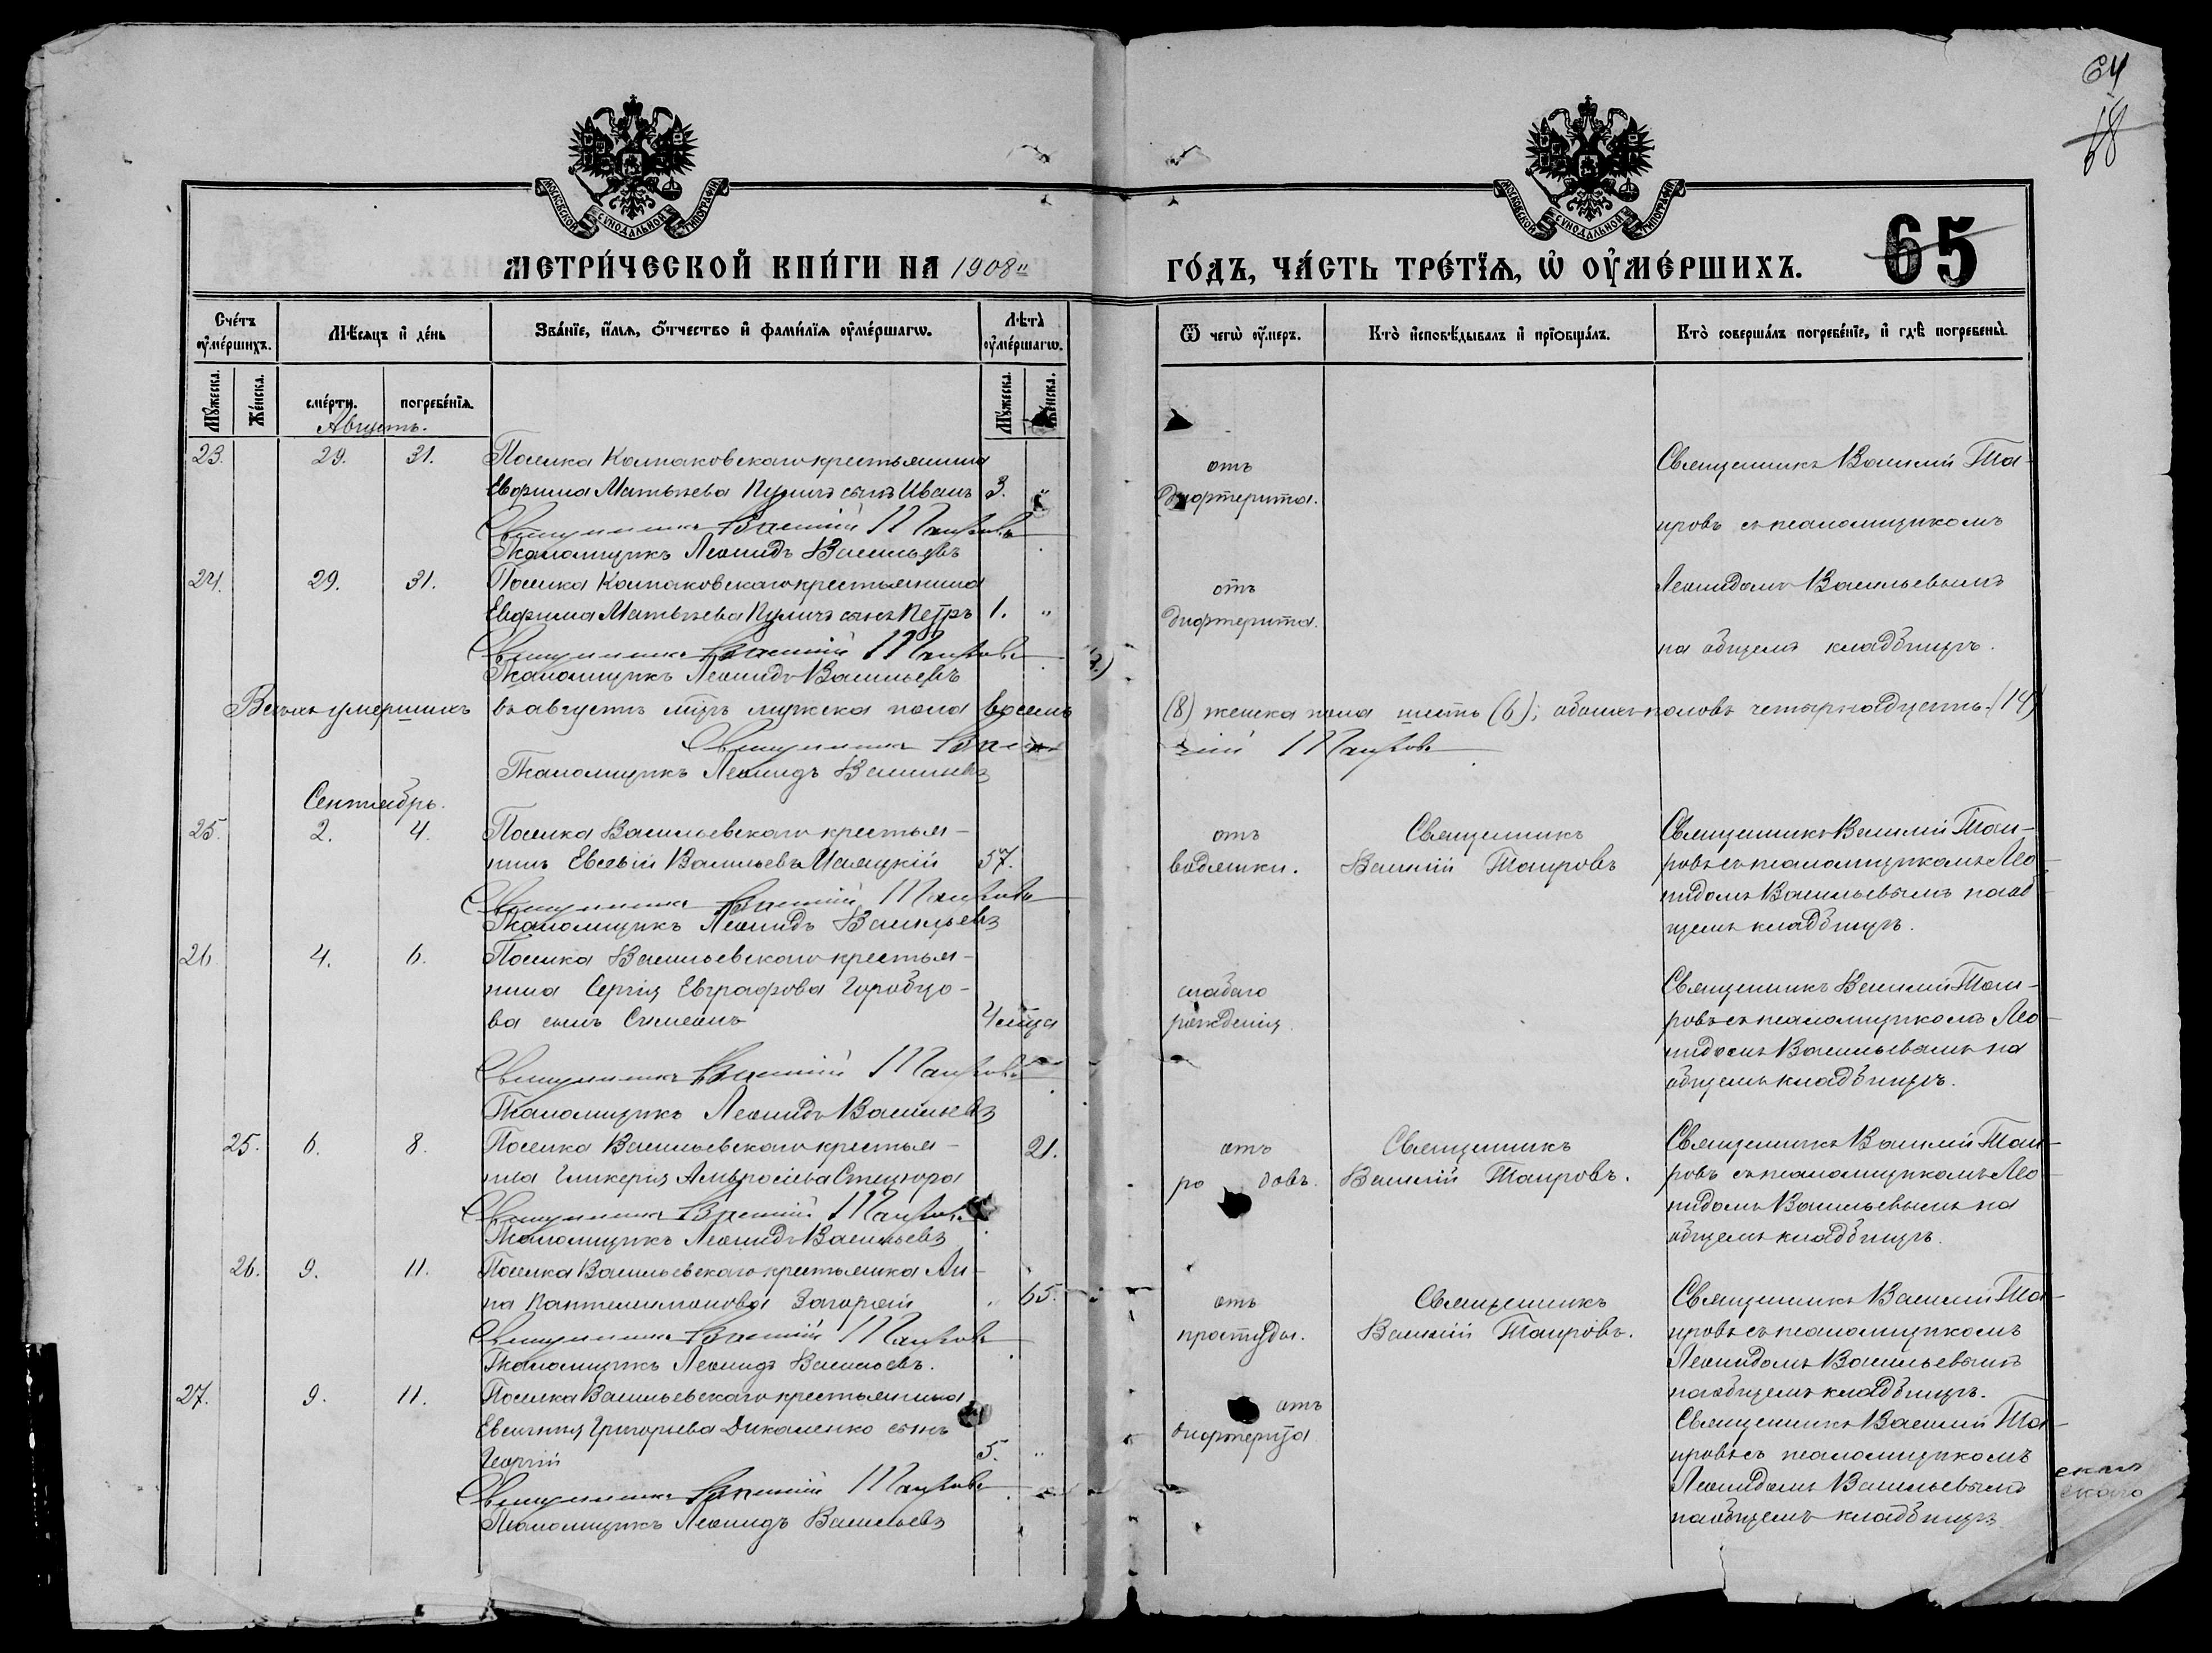 64
68
МОСКОВСКОЙ СУНОДАЛЬНОЙ ТИПОГРАФІИ
МОСКОВСКОЙ СУНОДАЛЬНОЙ ТИПОГРАФІИ
МЕТРИ́ЧЕСКОЙ КНИ́ГИ НА 1908 ГО́ДЪ, ЧА́СТЬ ТРЕ́ТЇѦ, Ѡ҆ ОУ҆МЕ́РШИХЪ. 65
Сче́тъ оу҆ме́ршихъ.
Мѣ́сѧцъ и҆ де́нь
Зва́нїе, и҆́мѧ, ѻ҆́тчество и҆ фами́лїѧ оу҆ме́ршагѡ.
Лѣ̀та оу҆ме́ршагѡ.
Ѿ чегѡ̀ оу҆́меръ.
Кто̀ и҆сповѣ́дывалъ и҆ прїѻбща́лъ.
Кто̀ соверша́лъ погребе́нїе, и҆ гдѣ̀ погребены̀.
Мꙋ́жеска.
Же́нска.
сме́рти.
погребе́нїѧ.
Мꙋ́жеска.
Же́нска.
Августъ.
23. 29. 31. Поселка Колпаковскаго крестьянина
Евфима Матвѣева Кулича сынъ Иванъ 3. "
Священникъ Василій Таировъ
Псаломщикъ Леонидъ Васильевъ
отъ
дифтерита.
Священникъ Василій Та-
ировъ съ псаломщикомъ
24. 29. 31. Поселка Колпаковскаго крестьянина
Евфима Матвѣева Кулича сынъ Петръ 1. "
Священникъ Василій Таировъ
Псаломщикъ Леонидъ Васильевъ
отъ
дифтерита.
Леонидомъ Васильевымъ
на общемъ кладбищѣ.
Всѣхъ умершихъ въ августѣ мѣцѣ мужска пола восемь (8) женска пола шесть (6); обоихъ половъ четырнадцать. (14)
Священникъ Василій Таировъ
Псаломщикъ Леонидъ Васильевъ
Сентябрь.
25. 2. 4. Поселка Васильевскаго крестья-
нинъ Евсевій Васильевъ 57.
Священникъ Василій Таировъ
Псаломщикъ Леонидъ Васильевъ
отъ
водянки.
Священникъ
Василій Таировъ
Священникъ Василій Таи-
ровъ съ псаломщикомъ Лео-
нидомъ Васильевымъ на об
щемъ кладбищѣ.
26. 4. 6. Поселка Васильевскаго крестья-
нина Сергія Евграфова Горобцо-
ва сынъ Симеонъ 4 мѣца
Священникъ Василій Таировъ
Псаломщикъ Леонидъ Васильевъ
слабаго
рожденія
Священникъ Василій Таи-
ровъ съ псаломщикомъ Лео-
нидомъ Васильевымъ на
общемъ кладбищѣ.
25. 6. 8. Поселка Васильевскаго крестья-
нка Гликерія Амвросіева Стецюра 21.
Священникъ Василій Таировъ
Псаломщикъ Леонидъ Васильевъ
отъ
родовъ.
Священникъ
Василій Таировъ.
Священникъ Василій Таи-
ровъ съ псаломщикомъ Лео-
нидомъ Васильевымъ на
общемъ кладбищѣ.
26. 9. 11. Поселка Васильевскаго крестьянка Ан-
на Пантелеимонова " 65.
Священникъ Василій Таировъ
Псаломщикъ Леонидъ Васильевъ.
отъ
простуды.
Священникъ
Василій Таировъ.
Священникъ Василій Та-
ировъ съ псаломщикомъ
Леонидомъ Васильевымъ
на общемъ кладбищѣ.
27. 9. 11. Поселка Васильевскаго крестьянина
Евсигнія Григорьева Дикаленко сынъ
Георгій 5. "
Священникъ Василій Таировъ
Псаломщикъ Леонидъ Васильевъ
отъ
дифтерита
Священникъ Василій Та-
ировъ съ псаломщикомъ
Леонидомъ Васильевымъ
на общемъ кладбищѣ